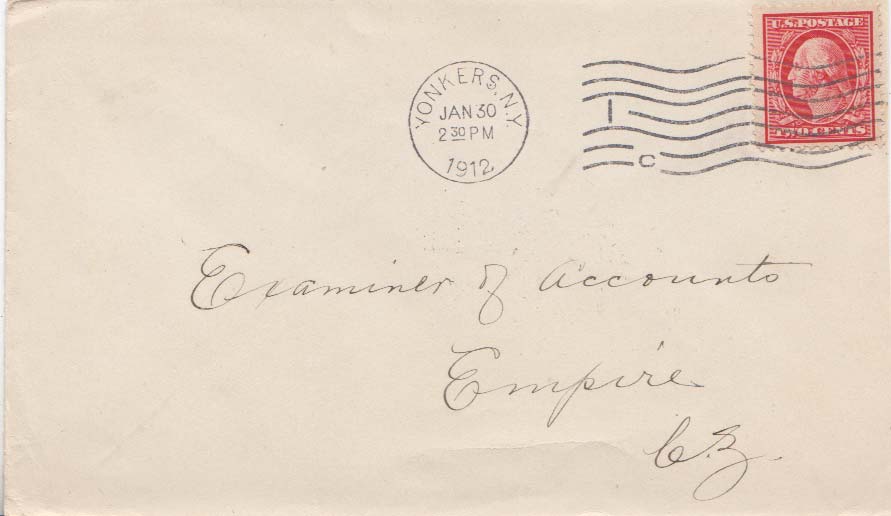 U.S. POSTAGE
TWO CENTS
YONKERS, N.Y.
JAN 30
2 30 PM
1912
1
C
Examiner of Accounts
Empire
C.Z.